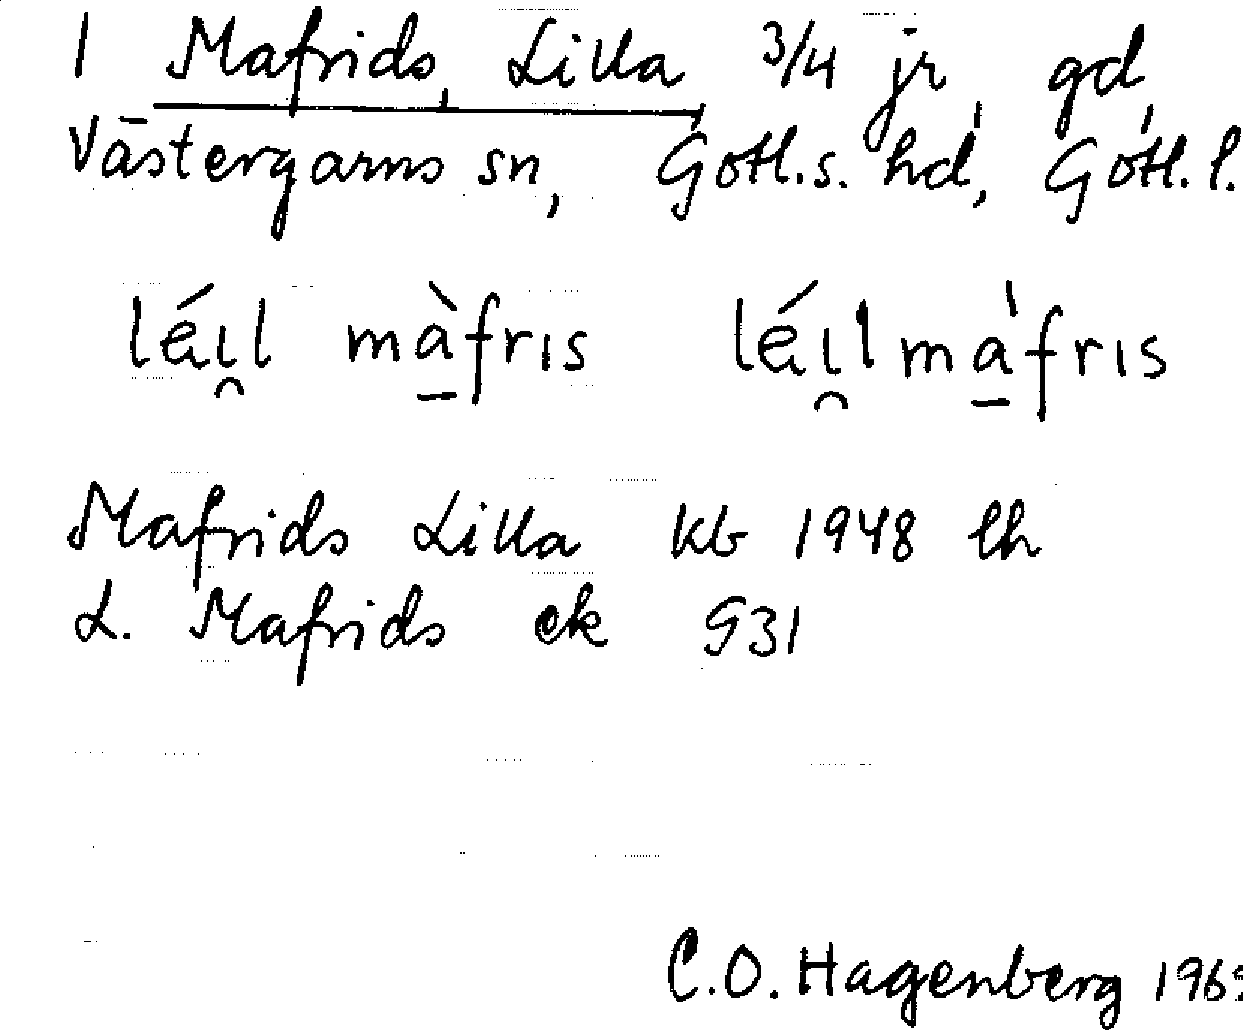 1 Mafrids, Lilla 3/4 jr, gd,
Västergarns sn, Gotl.s. hd, Gotl. l.
lé̱ɪ̯l mà̱fris lé̱ɪ̯l ma̱'fris
Mafrids Lilla kb 1948 lh
L. Mafrids ek 931
C.O. Hagenberg